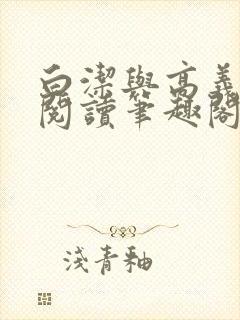 白潔與高義
閱讀筆趣閣
淺青釉